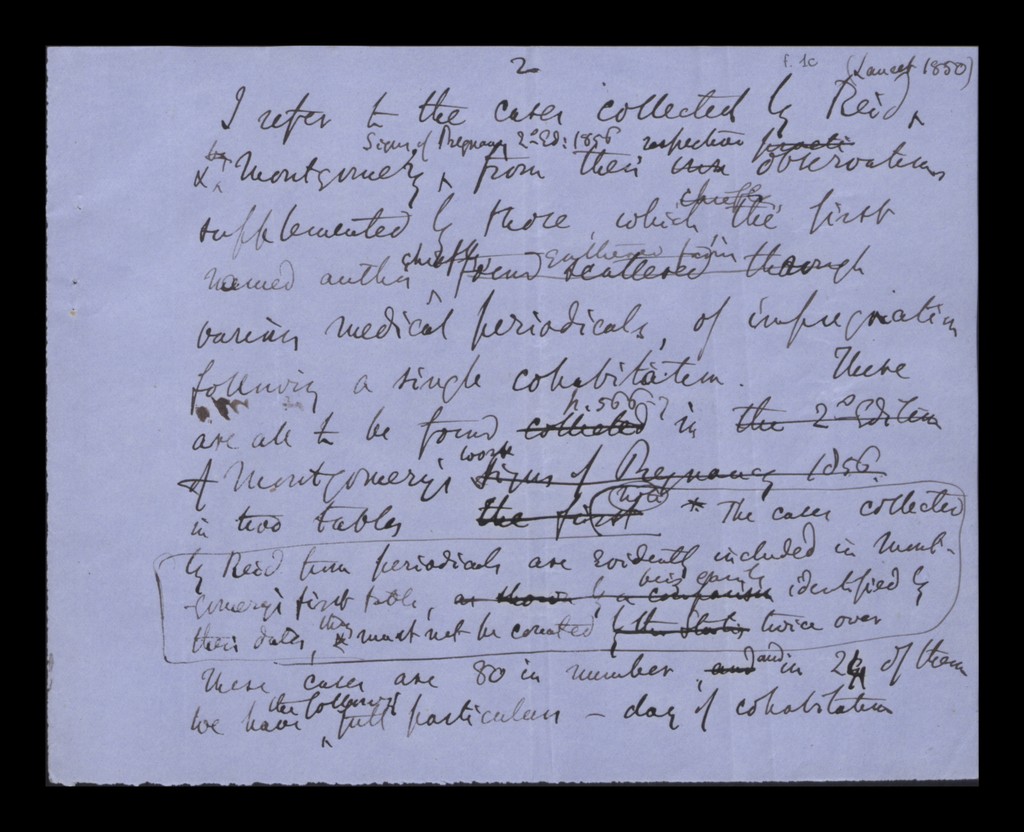 2
f. 1c
(Lancet 1850)
I refer to the cases collected by Reid,
Signs of Pregnancy 2nd Ed: 1856 respective practi
& by Montgomery, from their own observations
chiefly
supplemented by those, which the first
chiefly gathered from
named author found scattered through
various medical periodicals, of impregnation
following a single cohabitation. These
p. 566-7
are all to be found collected in the 2nd Edition
work
of Montgomery's Signs of Pregnancy 1856.
(note)
in two tables the first * The cases collected
by Reid from periodicals are evidently included in Mont-
being easily
-gomery's first table, as shown by a comparison identified by
they
their dates, & must not be counted by the twice over
These cases are 80 in number, and and in 24 of them
the following
we have full particulars – day of cohabitation